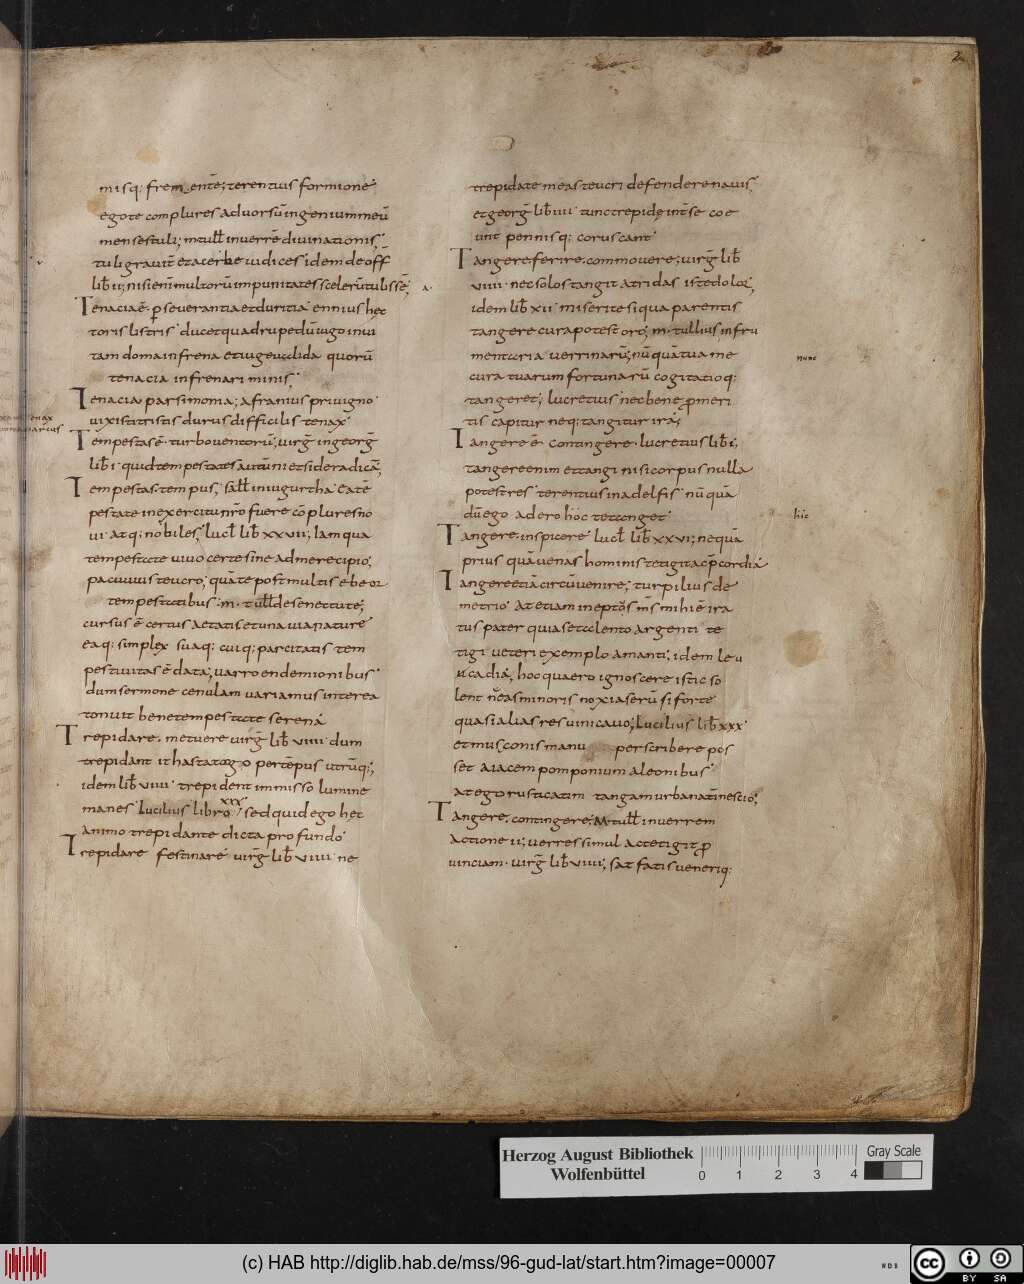 2
misq: frementē; terentius formione
egote complures aduorsū ingenium meū
mensestuli; mtull inuerrē diuinationis;
tuli grauit̄ et acerbe iudices idem deoff
lib̄ ii; nisi enī multorū impunitates scelerū tulissē;
Tenacia ē perseuerantia et duritia ennius hec
toris listris ducet quadrupedū iugo inui
tam doma infrena et iuge ualida quorū
tenacia infrenari minis;
Tenacia parsimonia; afranius priuigno
uixisti tristis durus difficilis tenax
Tempestas ē turbo uentorū; uirḡ in georḡ
lib̄ i quid tempestates autūni et sidera dicā;
Tempestas tempus; sall in iugurtha ea tē
pestate in exercitu nr̄o fuere cōplures no
ui atq: nobiles; lucl lib̄ xxvii; iam qua
tempestate uiuo certe sine ad me recipio;
pacuuius teucro; quā te post multis
tempestatibus; m tull de senectute;
cursus ē certus aetatis et una uia naturē
eaq: simplex suaq: cuiq: parcitatis tem
pestiuitas ē data; uarro endemionibus
dum sermone cenulam uariamus interea
tonuit bene tempestate serena
Trepidare metuere uirḡ lib̄ viiii dum
trepidant it hasta tago per tēpus utrūq;;
idem lib̄ viiii trepident immisso lumine
manes lucilius libro xix; sed quid ego hec
animo trepidante dicta profundo
Trepidare festinare uirḡ lib̄ viiii ne
trepidate meas teucri defendere nauis
et georḡ lib̄ iiii tunc trepidę int̄ se coe
unt pennisq: coruscant
Tangere ferire commouere; uirḡ lib̄
viiii nec solos tangit atridas iste dolor;
idem lib̄ xii miserite si qua parentis
tangere cura potest oro; m tullius in fru
mentaria uerrinarū; nū quā tua me
cura tuarum fortunarū cogitatioq:
tangeret; lucretius nec bene p̄meri
tis capitur neq; tangitur ira;
Tangere ē contingere lucretius lib̄ i;
tangere enim et tangi nisi corpus nulla
potest res terentius in adelfis nū quā
dū ego adero hōc te tanget
Tangere inspicere lucl lib̄ xxvi; ne quā
prius quā uenas hominis tetigit ac p̄cordia
Tangere etiā circūuenire; turpilius de
metrio at etiam ineptōs mihi ē ira
tus pater quia se talento argenti te
tigi ueteri exemplo amanti; idem leu
cadia; hoc quaero ignoscere istic so
lent eas minoris noxias erū si forte
quasi alias res uini cauo; lucilius lib̄ xxx
et musconis manu perscribere pos
set aiacem pomponium aleonibus
at ego rusticatim tangam urbanatī nescio;
Tangere contingere; m tull in uerrem
actione ii; uerres simul ac tetigit p̄
uinciam uirḡ lib̄ viiii; sat fatis ueneriq:
nunc
hīc
Herzog August Bibliothek
Wolfenbüttel
0 1 2 3 4
Gray Scale
(c) HAB http://diglib.hab.de/mss/96-gud-lat/start.htm?image=00007
WDB
cc BY SA